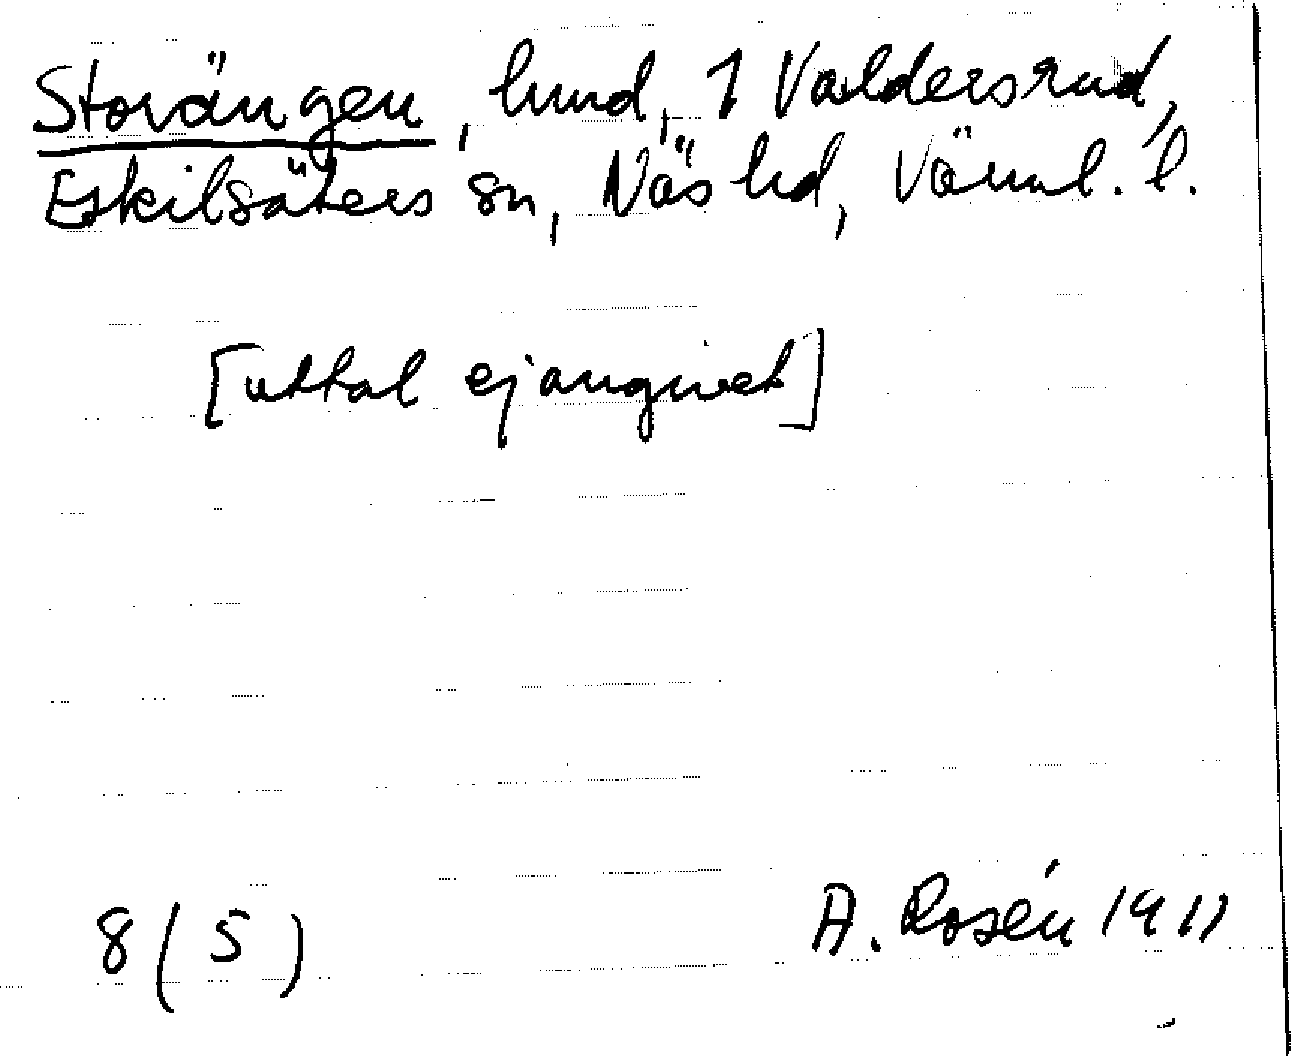 Storängen, lund, 1 Valdersrud,
Eskilsäters sn, Näs hd, Värml. l.
[uttal ej angivet]
8(5)
A. Rosén 1911